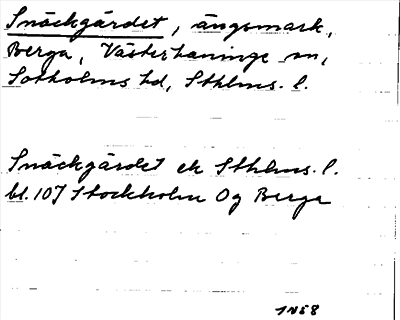 Snäckgärdet, ängsmark,
Berga, Västerhaninge sn,
Sotholms hd, Sthlms. l.
Snäckgärdet ek Sthlms. l.
bl. 107 Stockholm Og Berga
1N58